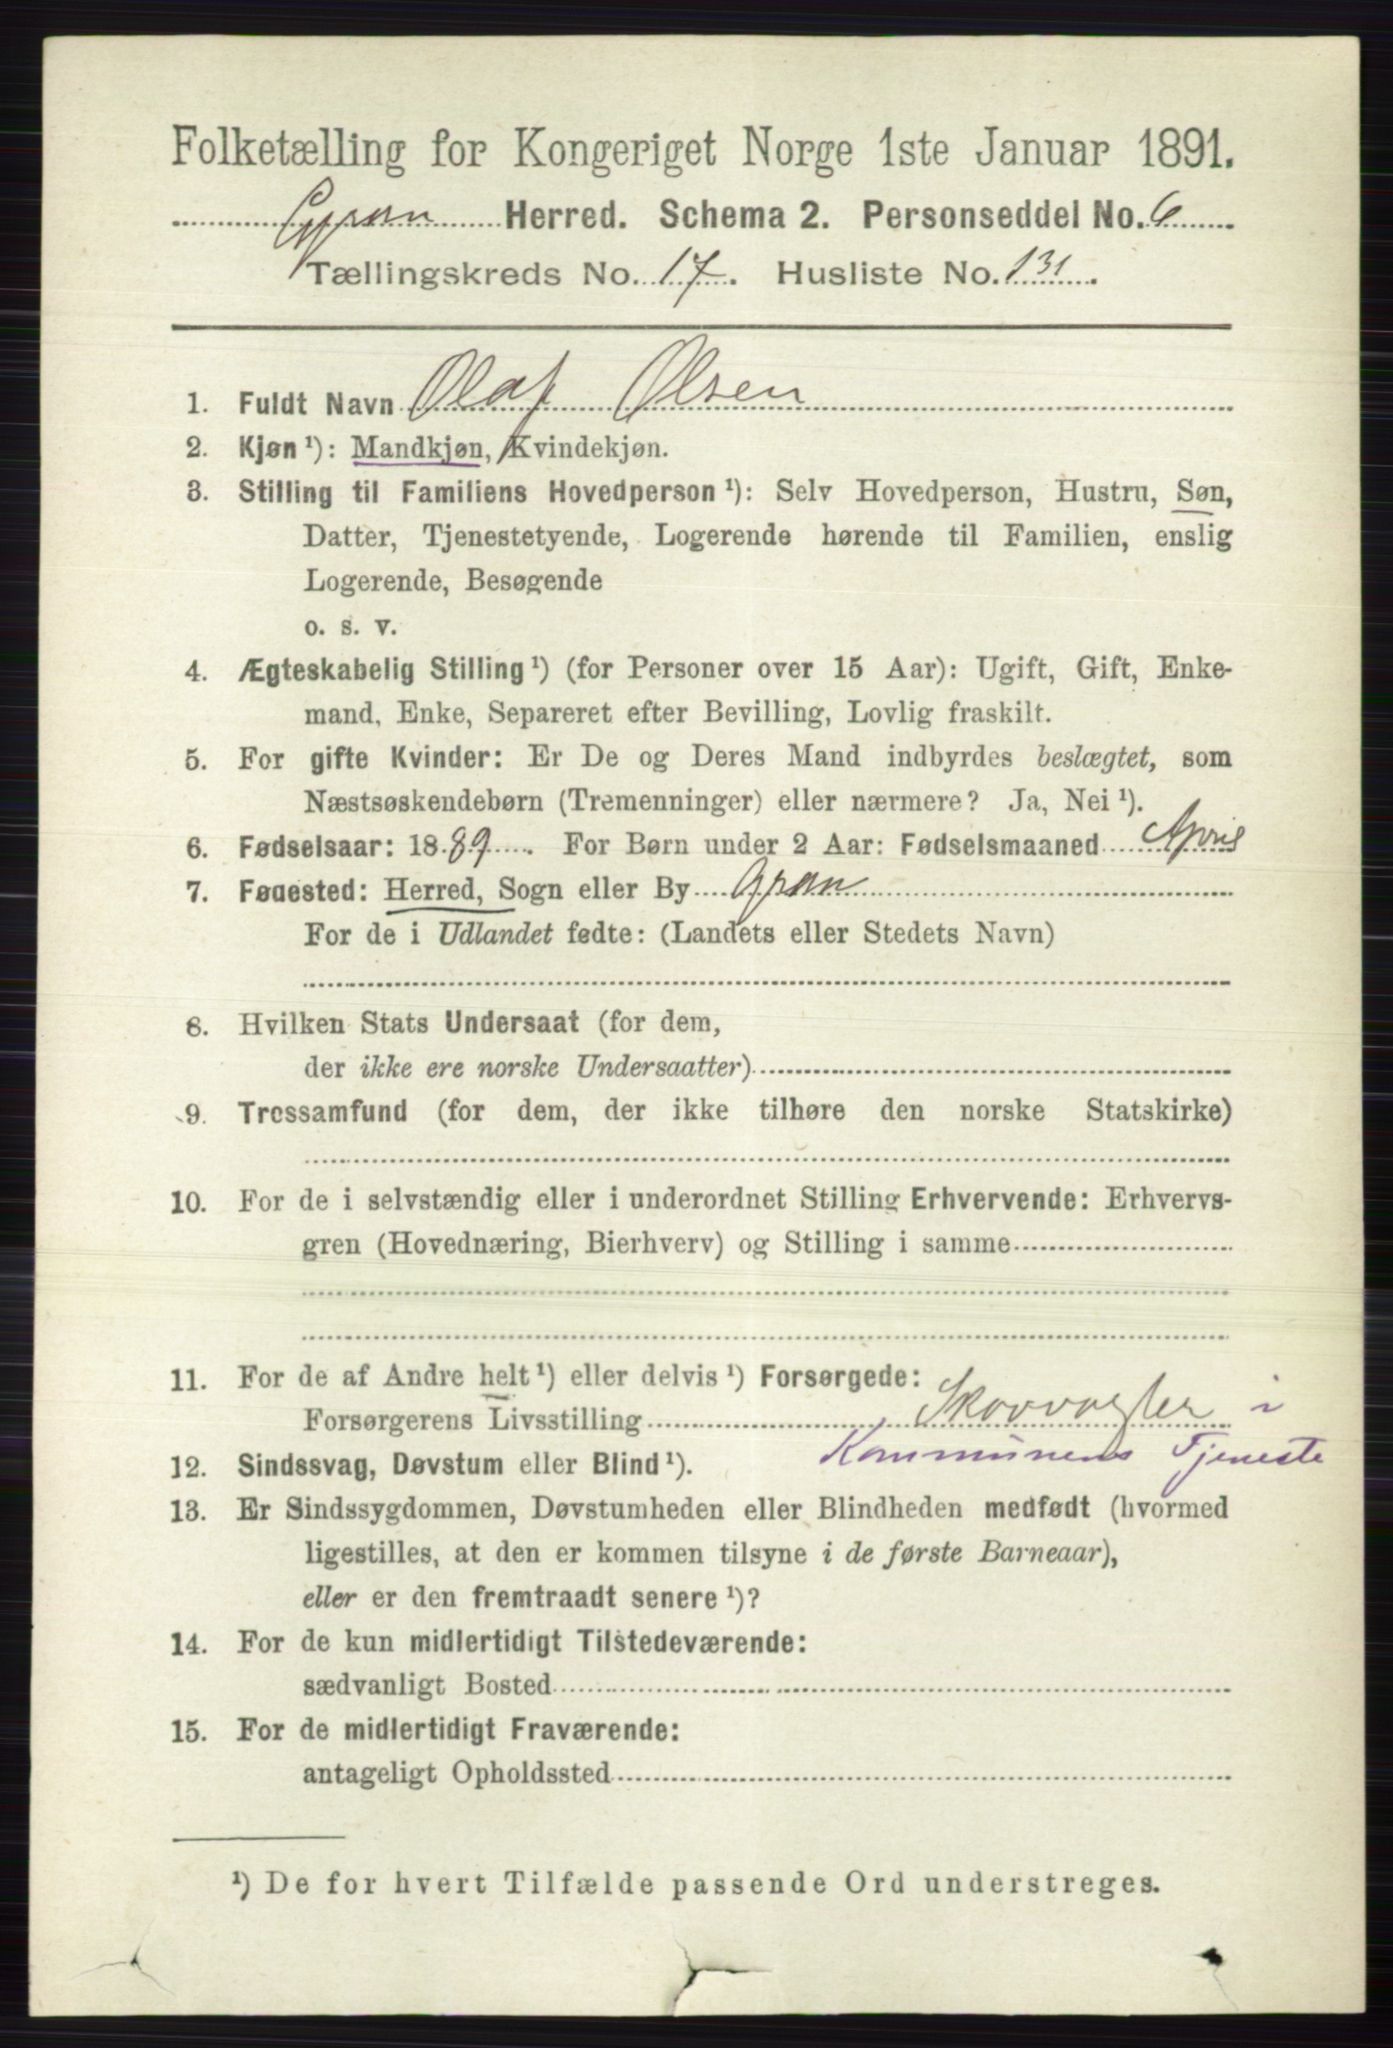 Folketælling for Kongeriget Norge 1ste Januar 1891.
Gran Herred. Schema 2. Personseddel No. 6
Tællingskreds No. 17. Husliste No. 131.
1. Fuldt Navn Olaf Olsen
2. Kjøn ¹): Mandkjøn, Kvindekjøn.
3. Stilling til Familiens Hovedperson ¹): Selv Hovedperson, Hustru, Søn,
Datter, Tjenestetyende, Logerende hørende til Familien, enslig
Logerende, Besøgende
o. s. v.
4. Ægteskabelig Stilling ¹) (for Personer over 15 Aar): Ugift, Gift, Enke-
mand, Enke, Separeret efter Bevilling, Lovlig fraskilt.
5. For gifte Kvinder: Er De og Deres Mand indbyrdes beslægtet, som
Næstsøskendebørn (Tremenninger) eller nærmere? Ja, Nei ¹).
6. Fødselsaar: 1889. For Børn under 2 Aar: Fødselsmaaned April
7. Fødested: Herred, Sogn eller By Gran
For de i Udlandet fødte: (Landets eller Stedets Navn)
8. Hvilken Stats Undersaat (for dem,
der ikke ere norske Undersaatter)
9. Trossamfund (for dem, der ikke tilhøre den norske Statskirke)
10. For de i selvstændig eller i underordnet Stilling Erhvervende: Erhvervs-
gren (Hovednæring, Bierhverv) og Stilling i samme
11. For de af Andre helt ¹) eller delvis ¹) Forsørgede:
Forsørgerens Livsstilling Skovvogter i
Kommunens Tjeneste
12. Sindssvag, Døvstum eller Blind ¹).
13. Er Sindssygdommen, Døvstumheden eller Blindheden medfødt (hvormed
ligestilles, at den er kommen tilsyne i de første Barneaar),
eller er den fremtraadt senere ¹)?
14. For de kun midlertidigt Tilstedeværende:
sædvanligt Bosted
15. For de midlertidigt Fraværende:
antageligt Opholdssted
¹) De for hvert Tilfælde passende Ord understreges.